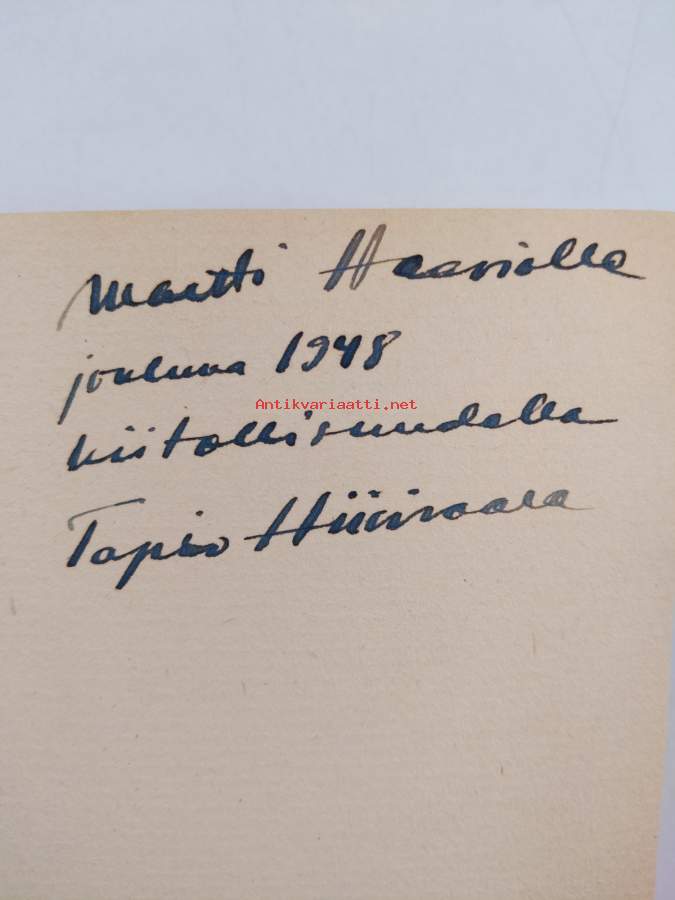 Martti Haaviolle
jouluna 1948
Antikvariaatti.net
kiitollisuudella
Tapio Hiisivaara